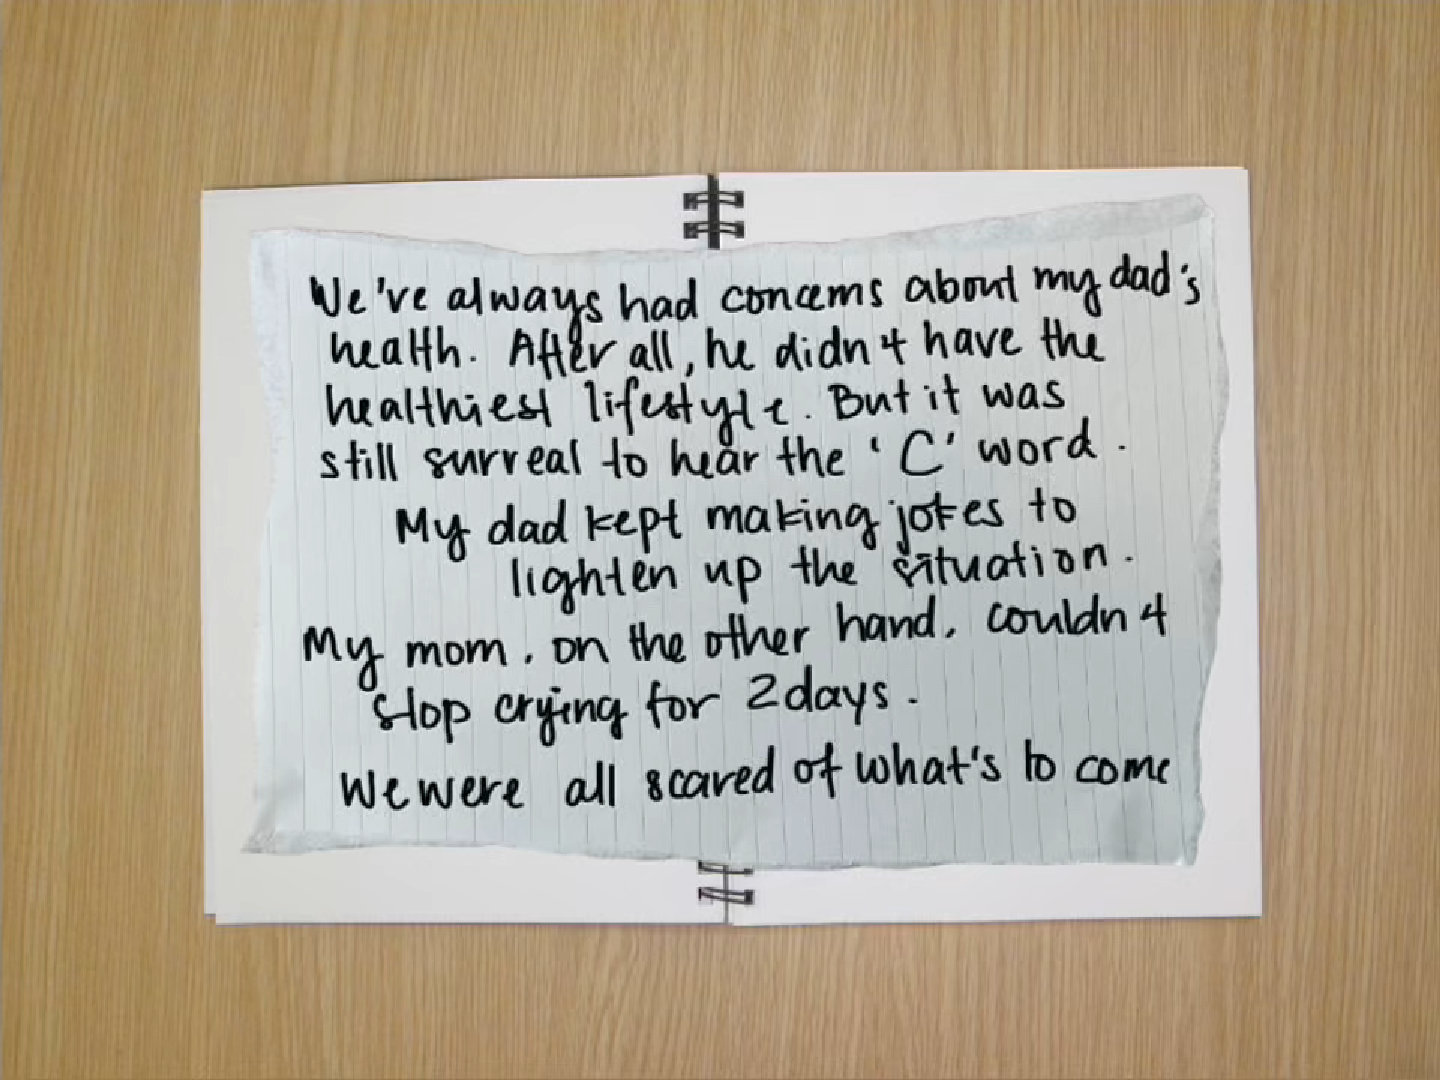 We've always had concerns about my dad's
health. After all, he didn't have the
healthiest lifestyle. But it was
still surreal to hear the 'C' word.
My dad kept making jokes to
lighten up the situation.
My mom, on the other hand, couldn't
stop crying for 2 days.
We were all scared of what's to come